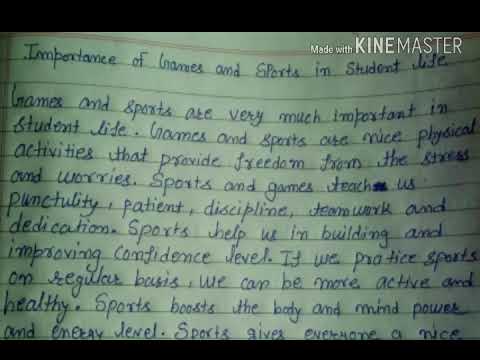 Made with KINEMASTER
Importance of Games and Sports in Student life
Games and sports are very much important in
student life. Games and sports are nice physical
activities that provide freedom from the stress
and worries. Sports and games teach us
punctulity, patient, discipline, teamwork and
dedication. Sports help us in building and
improving confidence level. If we pratice sports
on regular basis, we can be more active and
healthy. Sports boosts the body and mind power
and energy level. Sports gives everyone a nice